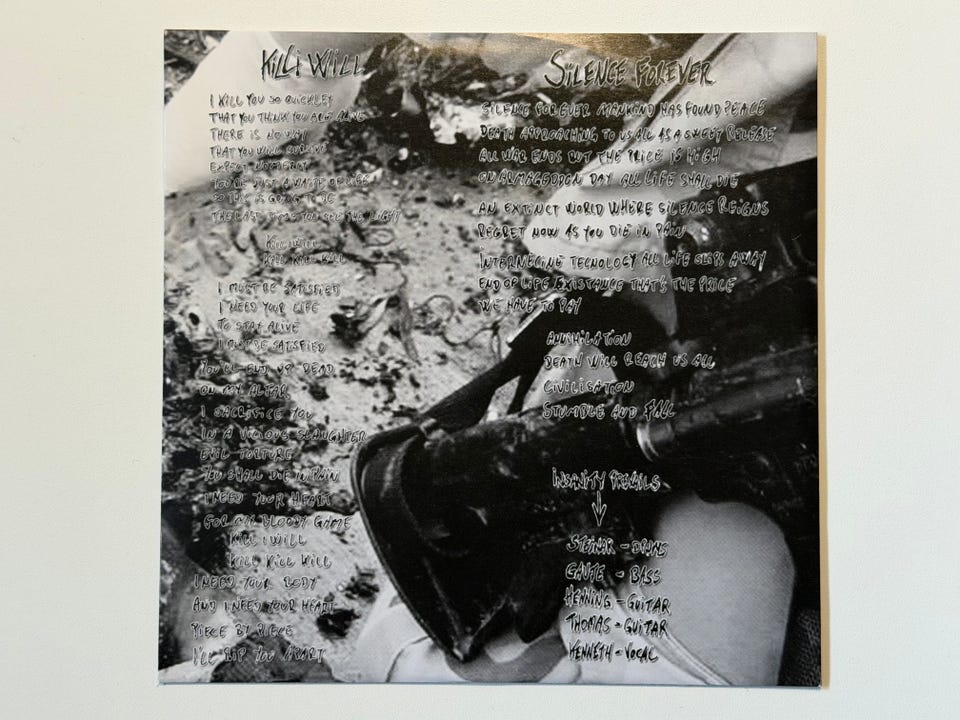 KILL I WILL
I KILL YOU SO QUICKLEY
THAT YOU THINK YOU ARE ALIVE
THERE IS NO WAY
THAT YOU WILL SURVIVE
EXPECT NO MERCY
YOU'RE JUST A WASTE OF LIFE
SO THIS IS GOING TO BE
THE LAST TIME YOU SEE THE LIGHT
KILL I WILL
KILL KILL KILL
I MUST BE SATISFIED
I NEED YOUR LIFE
TO STAY ALIVE
I MUST BE SATISFIED
YOU'LL END UP DEAD
ON MY ALTAR
I SACRIFICE YOU
IN A VICIOUS SLAUGHTER
EVIL TORTURE
YOU SHALL DIE IN PAIN
I NEED YOUR HEART
FOR MY BLOODY GAME
KILL I WILL
KILL KILL KILL
I NEED YOUR BODY
AND I NEED YOUR HEART
PIECE BY PIECE
I'LL RIP YOU APART
SILENCE FOREVER
SILENCE FOREVER MANKIND HAS FOUND PEACE
DEATH APPROACHING TO US ALL AS A SWEET RELEASE
ALL WAR ENDS BUT THE PRICE IS HIGH
ON ARMAGEDDON DAY ALL LIFE SHALL DIE
AN EXTINCT WORLD WHERE SILENCE REIGNS
REGRET NOW AS YOU DIE IN PAIN
INTERNECINE TECNOLOGY ALL LIFE SLIPS AWAY
END OF LIFE EXISTANCE THAT'S THE PRICE
WE HAVE TO PAY
ANNIHILATION
DEATH WILL REACH US ALL
CIVILISATION
STUMBLE AND FALL
INSANITY PREVAILS
STEINAR - DRUMS
GAUTE - BASS
HENNING - GUITAR
THOMAS - GUITAR
KENNETH - VOCAL